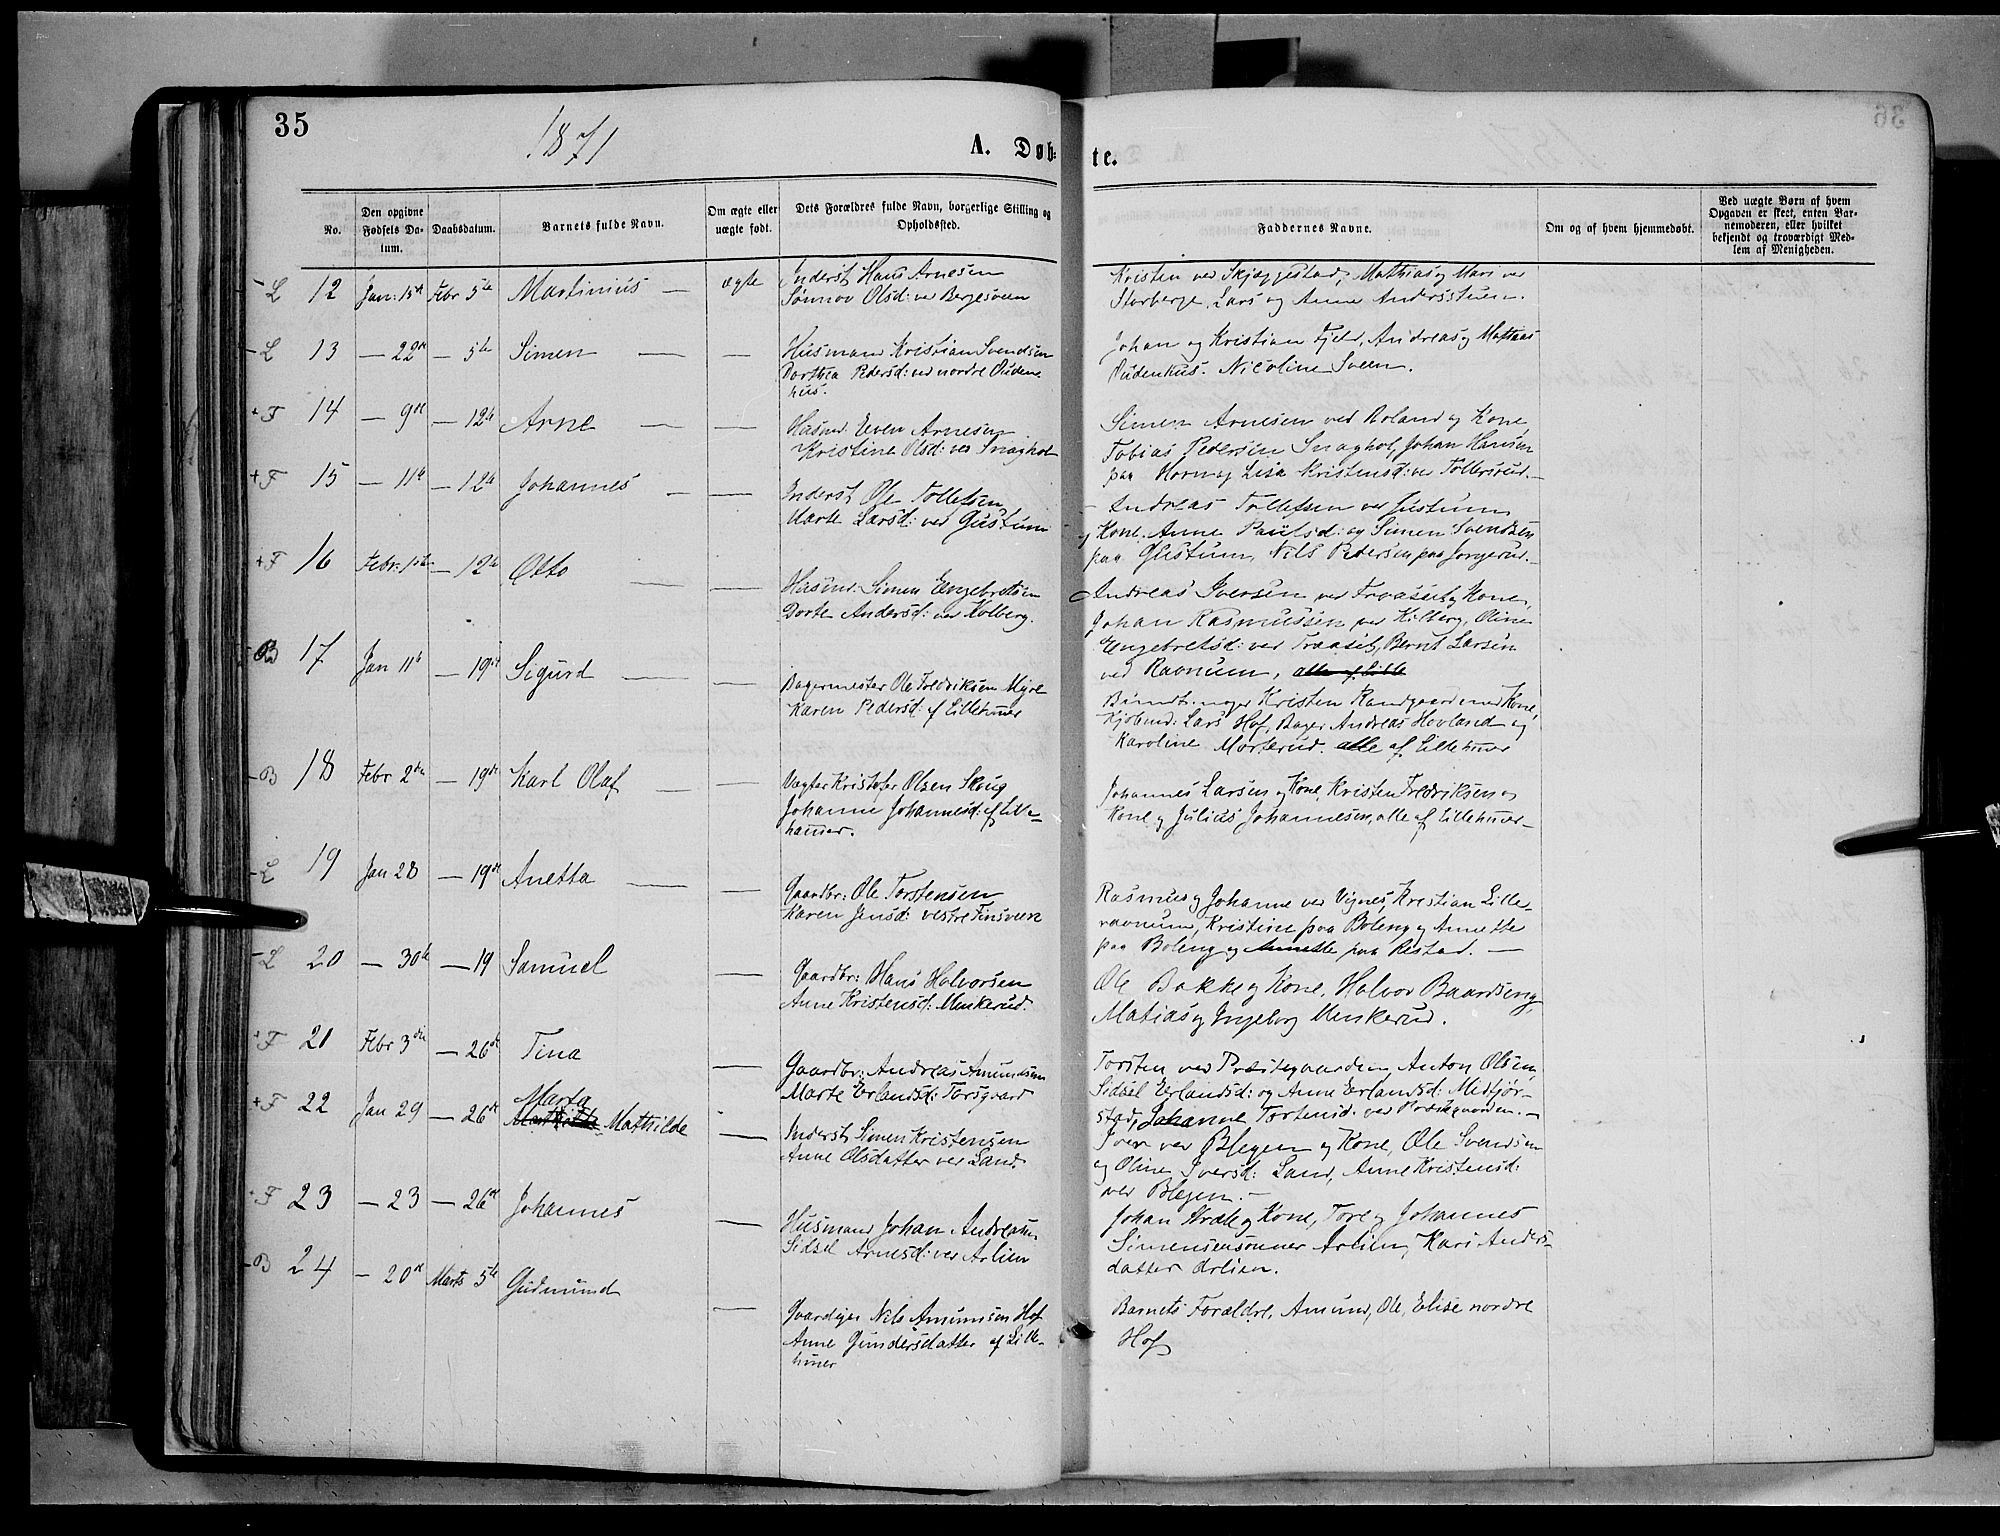 35
1871
A. Døb-
te.
No.
Den opgivne
Fødsels Da-
tum.
Daabsdatum.
Barnets fulde Navn.
Om ægte eller
uægte født.
Dets Forældres fulde Navn, borgerlige Stilling og
Opholdssted.
Faddernes Navne.
Om og af hvem hjemmedøbt.
Ved uægte Børn af hvem
Opgaven er skeet, enten Bar-
nemoderen, eller hvilket
bekjendt og troværdigt Med-
lem af Menigheden.
- L 12 Jan: 15de Febr 5te Martinius — ægte
Inderst Hans Arnesen
Sønnov Olsd: ved Bergesveen
Kristen ved Skjæggestad, Mathias og Mari ved
Storberge, Lars og Anne Andersstuen.
- L 13 — 22de — 5te Simen — —
Husmand Kristian Svendsen
Dorthea Pedersd: ved nordre Oudene
hus.
Johan og Kristian Fjeld, Andreas og Mathias
Oudenhus. Nicoline Sveen.
+ F 14 — 9de — 12te Arne — —
Husmd. Even Arnesen
Kristine Olsd: ved Snaghol
Simen Arnesen ved Roland og Kone,
Tobias Pedersen Snaghol, Johan Hansen
paa Horn og Lisa Kristensd: ved Tollersrud. —
+ F 15 — 11te — 12te Johannes — —
Inderst Ole Tollefsen
Marte Larsd: ved Gustum
— Andreas Tollefsen ved Gustum
og Kone. Anne Paulsd: og Simen Svendsen
paa Gustum, Nils Pedersen paa Jorgerud. —
+ F 16 Febr: 1ste — 12te Otto — —
Husmd: Simen Engebretsen
Dorte Andersd: ved Kolberg.
Andreas Iversen ved Traaset og Kone,
Johan Rasmussen ved Kilberg, Oline
Engebretsd: ved Traaset, Bernt Larsen
ved Ravnum, alle af Lille
B 17 Jan 11te — 19de Sigurd — —
Bagermester Ole Fredriksen Myre
Karen Pedersd: af Lillehmer
Bundtmager Kristen Randgaard med Kone,
Kjøbmd: Lars Hof, Bager Andreas Hovland og
Karoline Morterud. alle af Lillehmer
- B 18 Febr 2den — 19de Karl Olaf — —
Vægter Kristofer Olsen Skoug
Johanne Johannesd: af Lille-
hamer.
Johannes Larsen og Kone, Kristen Fredriksen og
Kone og Julius Johannesen, alle af Lillehmer —
- L 19 Jan 28 — 19de Anetta — —
Gaardbr: Ole Torstensen
Karen Jensd: vestre Finsveen
Rasmus og Johanne ved Vignes, Kristian Lille-
ravnum, Kristine paa Boleng og Annette
paa Boleng og Annette paa Restad. —
- L 20 — 30te — 19 Samuel —
Gaardbr: Hans Halvorsen
Anne Kristensd: Menkerud.
Ole Bakke og Kone. Halvor Baardseng,
Matias og Ingeborg Menkerud.
+ F 21 Febr 3die — 26de Tina —
Gaardbr: Andreas Amundsen
Marte Erlandsd: Torsgaard
Torsten ved Præstegaarden, Anton Olsen,
Sidsel Erlandsd: og Anne Erlandsd: Midtjør-
stad, Johanne Tostensd. ved Præstegaarden. —
+ F 22 Jan 29 — 26de Marta
Mathilde Mathilde —
Inderst Simen Kristensen
Anne Olsdatter ved Land.
Iver ved Blegen og Kone, Ole Svendsen
og Oline Iversd: Land, Anne Kristensd:
ved Blegen. —
+ F 23 — 23 — 26de Johannes —
Husmand Johan Andreasen
Sidsel Arnesd: ved Arlien
Johan Stræte og Kone, Tore og Johannes
Simensensønner Arlien, Kari Anders-
datter Arlien.
- B 24 — 20de Marts 5te Gudmund —
Gaardejer Nils Amunsen Hof
Anne Gundersdatter af Lille-
hmer
Barnets Forældre, Amund, Ole, Elise nordre
Hof